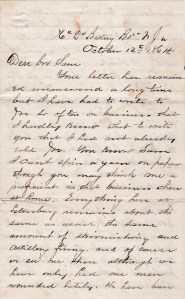 October 12th 1864
Dear Bro Sam
Your letter has remained
unanswered a long time
but I have had to write to
you so often on business that
I hardly know what to write
you that I had not already
told you. You know Sam
I can't spin a yarn on paper
though you may think me a
proficient in that business when
at home. Everything here at
Petersburg remains about the
same as usual the same
amount of skirmishing and
Artillery firing, and of course
we see our share although we
have only had one man
wounded lately. We have been